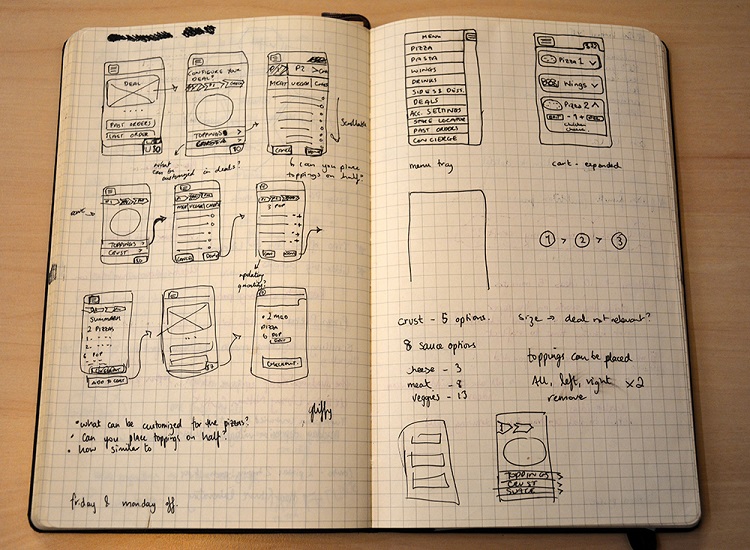 DEAL
PAST ORDERS
LAST ORDER
CONFIGURE YOUR
DEAL?
TOPPINGS >
P2
MEAT VEGGIE
CANCEL
Scrollable
what
can be
customized in deals?
can you place
toppings on half?
TOPPINGS >
CRUST >
CANCEL DONE
3 POP
updating
quantity?
SUMMARY
2 PIZZAS
1. - - -
2. - - -
6 POP
ADD TO CART
2 MED
PIZZA
6 POP
CHECKOUT
gliffy
• what can be customized for the pizzas?
• Can you place toppings on half?
• how similar to
friday & monday off.
MENU
PIZZA
PASTA
WINGS
DRINKS
SIDES & DESS.
DEALS
ACC. SETTINGS
STORE LOCATOR
PAST ORDERS
CONCIERGE
menu tray
Pizza 1
Wings
Pizza 2
- 1 +
cart - expanded
1 > 2 > 3
crust - 5 options.
size → deal not relevant?
8 sauce options
cheese - 3
meat - 8
veggies - 13
toppings can be placed
All, left, right x2
remove
TOPPINGS >
CRUST >
SAUCE >